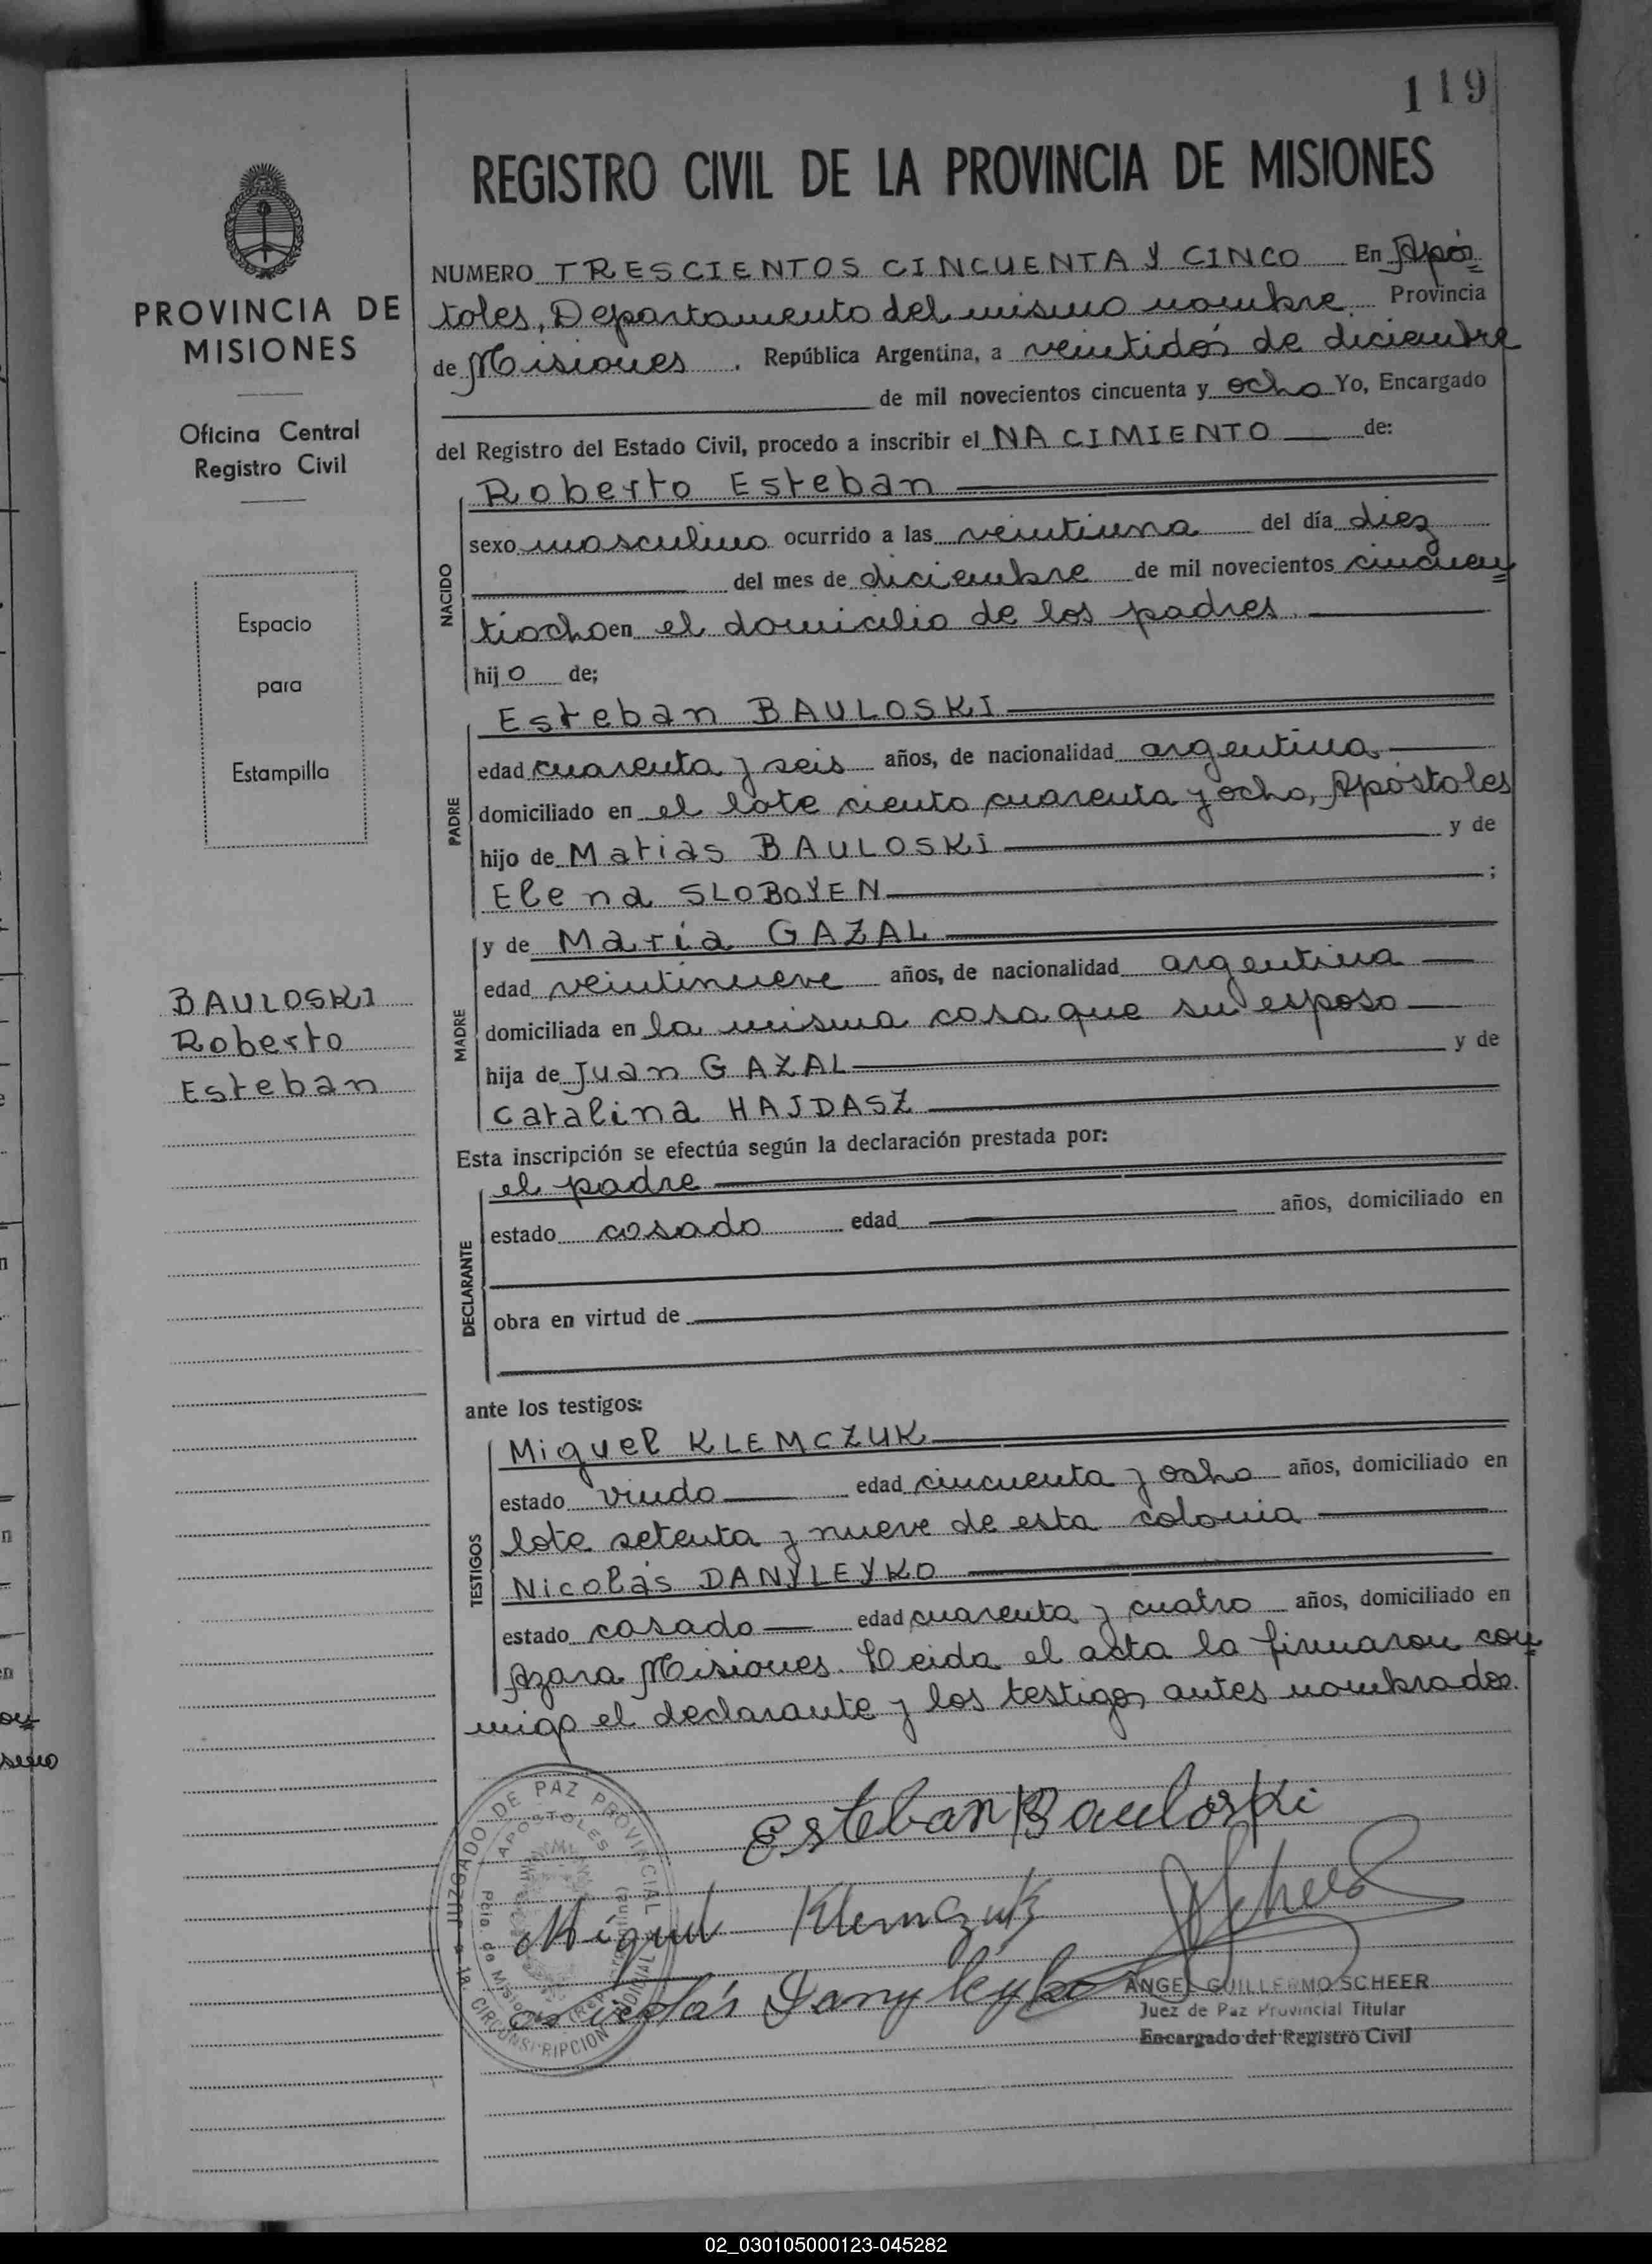 119
REGISTRO CIVIL DE LA PROVINCIA DE MISIONES
PROVINCIA DE
MISIONES
Oficina Central
Registro Civil
Espacio
para
Estampilla
BAULOSKI
Roberto
Esteban
NUMERO TRESCIENTOS CINCUENTA Y CINCO En Após=
toles, Departamento del mismo nombre Provincia
de Misiones. República Argentina, a veintidós de diciembre
de mil novecientos cincuenta y ocho Yo, Encargado
del Registro del Estado Civil, procedo a inscribir el NACIMIENTO de:
NACIDO
Roberto Esteban
sexo masculino ocurrido a las veintiuna del día diez
del mes de diciembre de mil novecientos cincuen=
tiocho en el domicilio de los padres
hijo de;
PADRE
Esteban BAULOSKI
edad cuarenta y seis años, de nacionalidad argentina
domiciliado en el lote ciento cuarenta y ocho, Apóstoles
hijo de Matias BAULOSKI y de
Elena SLOBOYEN ;
MADRE
y de María GAZAL
edad veintinueve años, de nacionalidad argentina
domiciliada en la misma casa que su esposo
hija de Juan GAZAL y de
Catalina HAJDASZ
Esta inscripción se efectúa según la declaración prestada por:
DECLARANTE
el padre
estado casado edad años, domiciliado en
obra en virtud de
ante los testigos:
TESTIGOS
Miguel KLEMCZUK
estado viudo edad cincuenta y ocho años, domiciliado en
lote setenta y nueve de esta colonia
Nicolás DANYLEYKO
estado casado edad cuarenta y cuatro años, domiciliado en
Azara Misiones. Leida el acta la firmaron con=
migo el declarante y los testigos antes nombrados.
Esteban Bauloski
Miguel Klemczuk
Scheer
Nicolás Danyleyko
JUZGADO DE PAZ PROVINCIAL
APOSTOLES
Pcia. de Misiones
1a. CIRCUNSCRIPCION JUDICIAL
ANGEL GUILLERMO SCHEER
Juez de Paz Provincial Titular
Encargado del Registro Civil
02_030105000123-045282